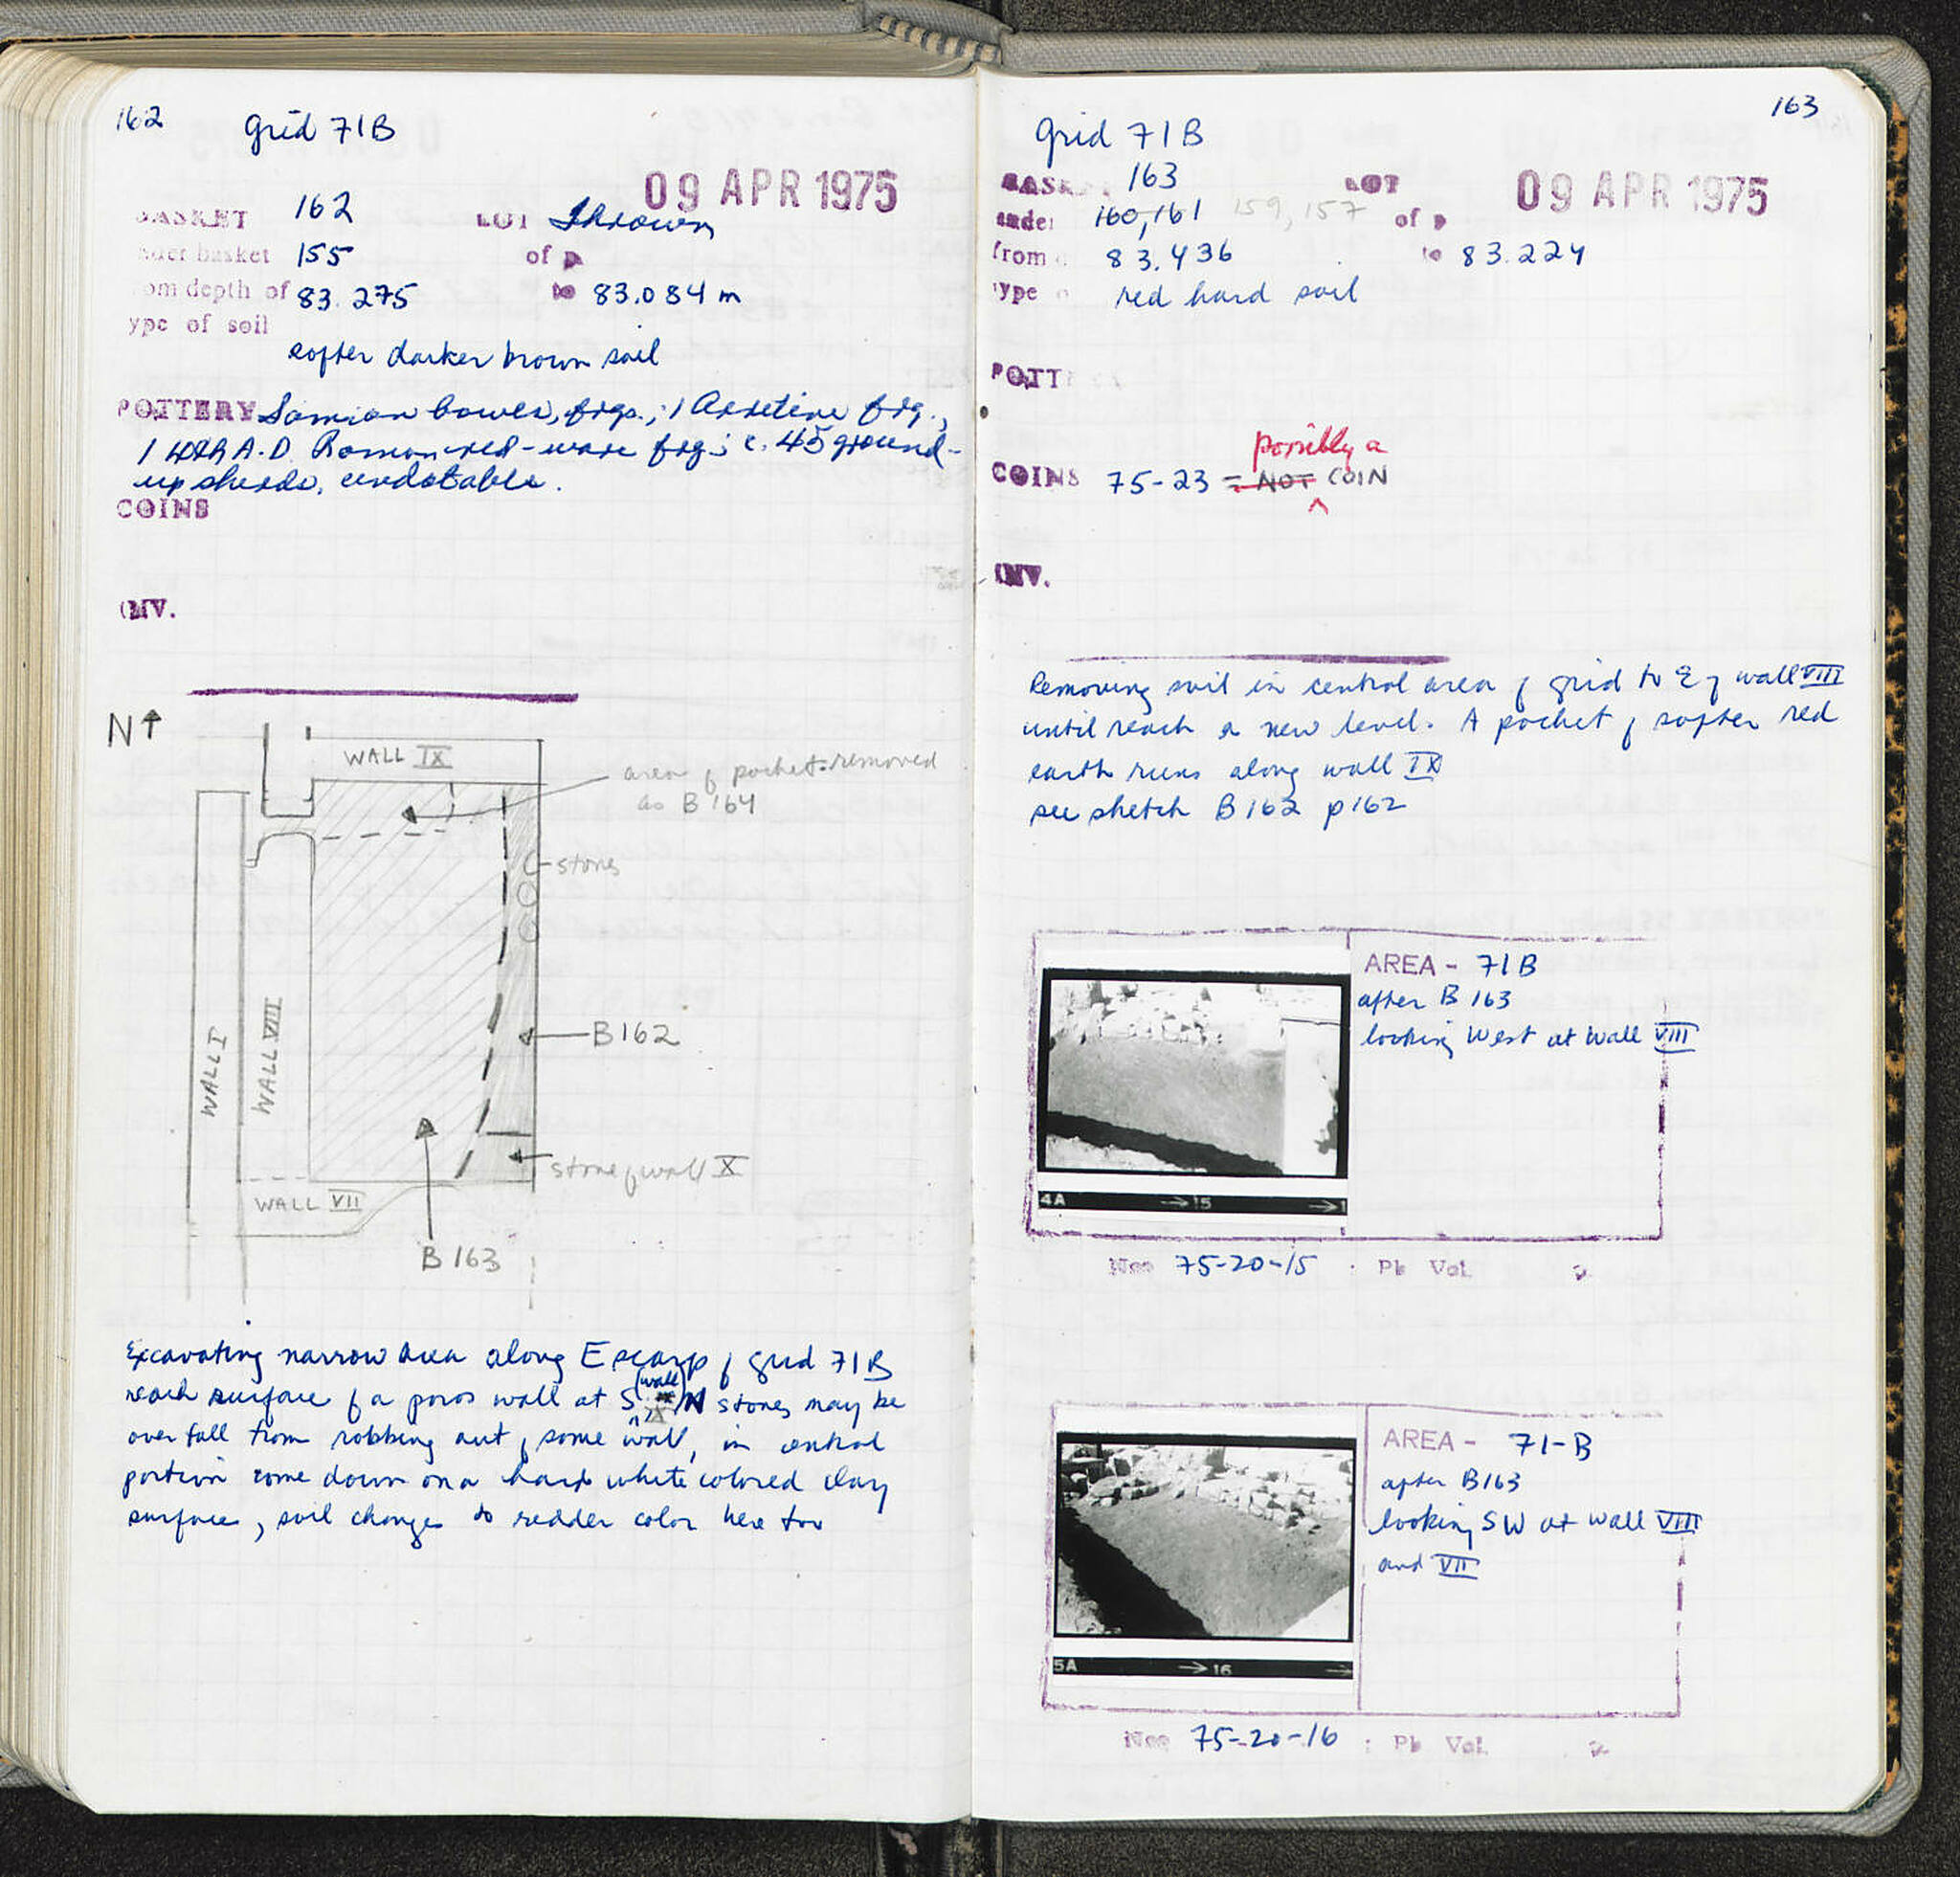 162
grid 71B
09 APR 1975
BASKET 162 LOT Thrown
under basket 155 of p
from depth of 83.275 to 83.084 m
type of soil
softer darker brown soil
POTTERY Samian bowls, frgs.; 1 Arretine frg.,
1 4th A.D. Roman red-ware frg.; c. 45 ground-
up sherds, undatable.
COINS
INV.
N↑
WALL IX
area of pocket removed
as B 164
stones
WALL I
WALL VIII
B 162
stone of wall X
WALL VII
B 163
Excavating narrow area along E scarp of grid 71B
reach surface of a poros wall at S (wall X) N stones may be
over fall from robbing out of some wall, in central
portion come down on a hard white colored clay
surface, soil changes to redder color here too
163
grid 71B
BASKET 163 LOT 09 APR 1975
under 160, 161 159, 157 of p
from 83.436 to 83.224
type red hard soil
POTTERY
possibly a
COINS 75-23 = NOT COIN
^
INV.
Removing soil in central area of grid to E of wall VIII
until reach a new level. A pocket of softer red
earth runs along wall IX
see sketch B 162 p 162
AREA - 71B
after B 163
looking West at Wall VIII
4A →15 →1
Neg 75-20-15 Ph Vol. p
AREA - 71-B
after B163
looking SW at Wall VIII
and VII
5A →16 →
Neg 75-20-16 Ph Vol. p